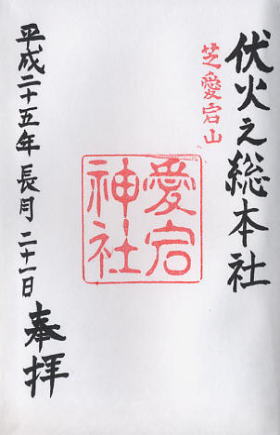 伏火之総本社
芝愛宕山
愛宕
神社
平成二十五年長月二十一日
奉拝